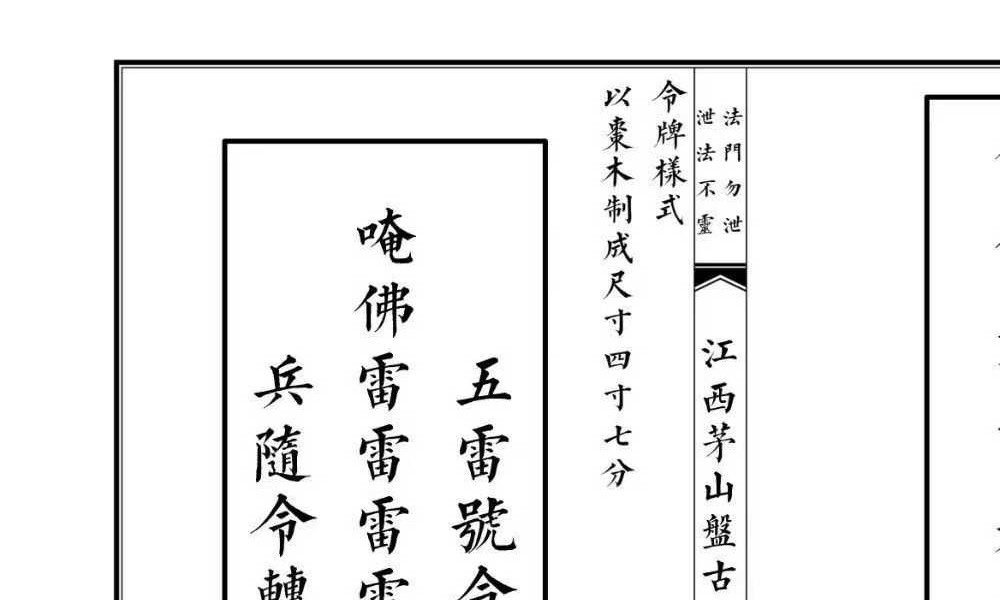 法門勿泄
泄法不靈
江西茅山盤古
令牌樣式
以棗木制成尺寸四寸七分
五雷號令
唵佛雷雷雷雷
兵隨令轉